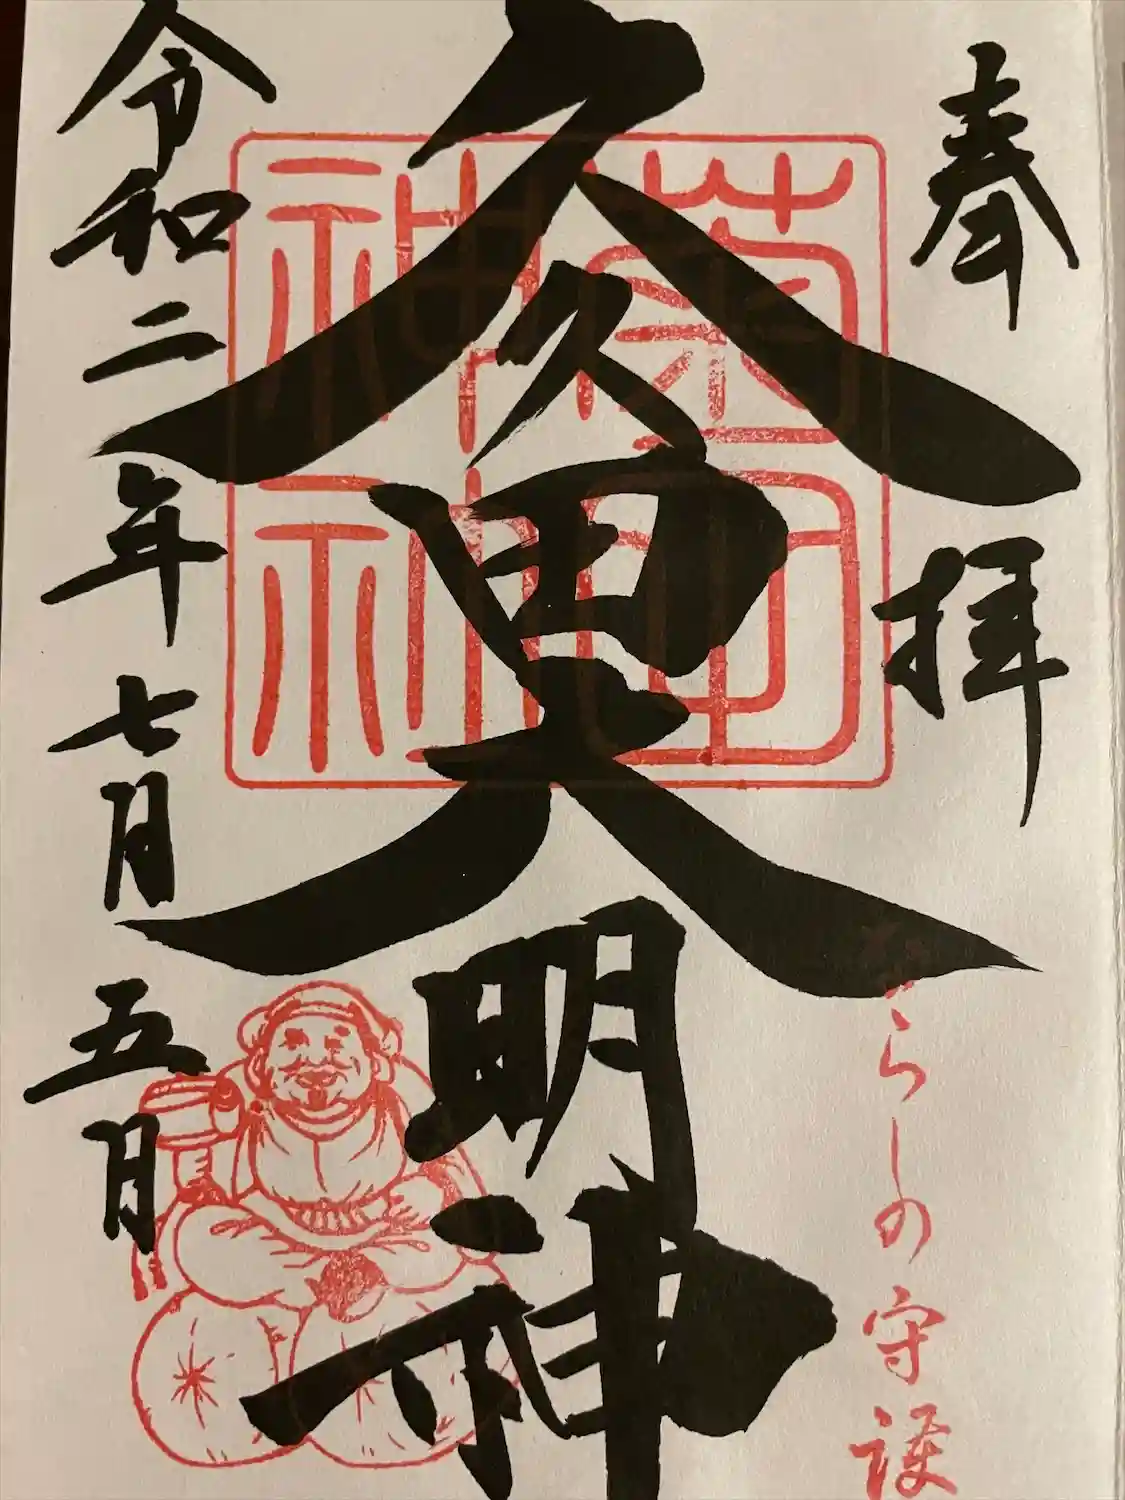 奉拝
ならしの守護
久久田大明神
菊田
神社
令和二年七月五日